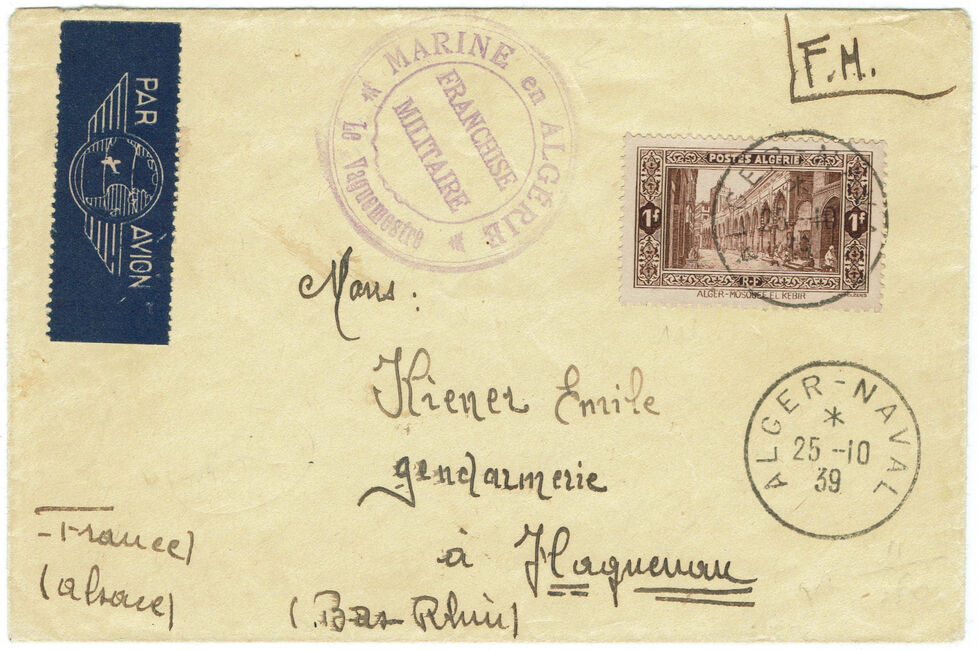 PAR AVION
MARINE en ALGÉRIE
FRANCHISE
MILITAIRE
Le Vaguemestre
F.M.
POSTES ALGERIE
1f
1f
RF
ALGER-MOSQUEE EL KEBIR
Kiener Emile
gendarmerie
à Haguenau
(Bas-Rhin)
France)
(alsace)
ALGER-NAVAL
25-10
39